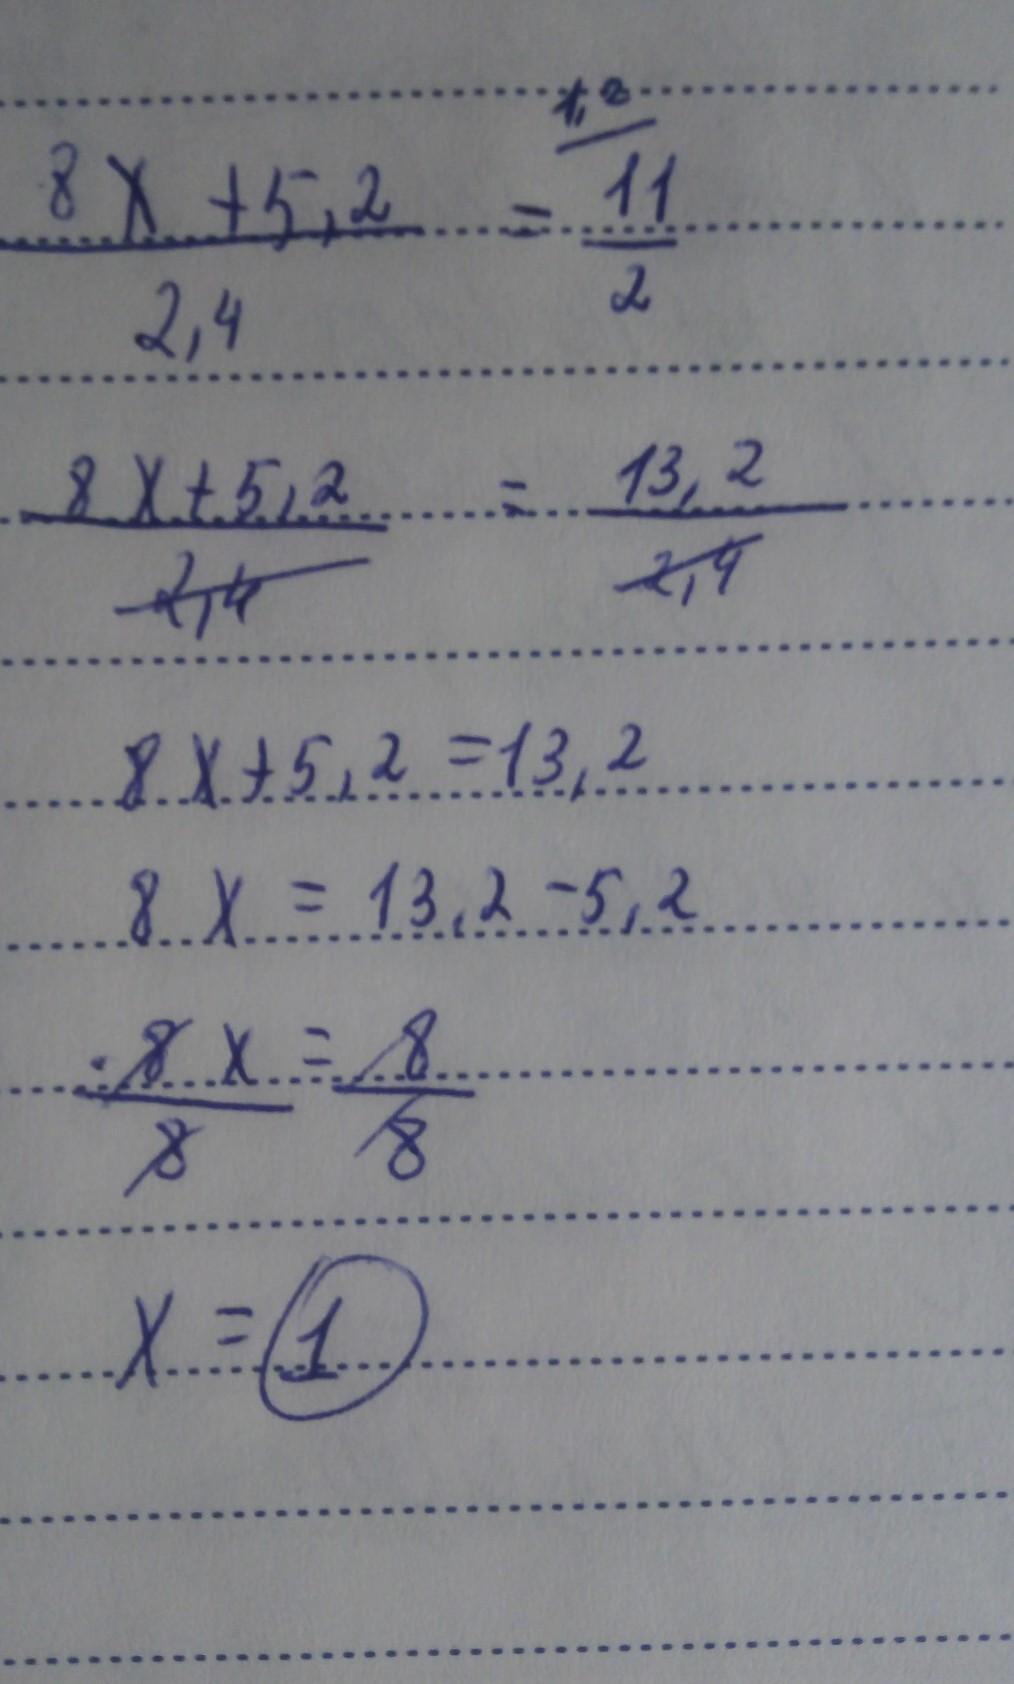 1,2
8x + 5,2 = 11
2,4 2
8x + 5,2 = 13,2
2,4 2,4
8x + 5,2 = 13,2
8x = 13,2 - 5,2
8x = 8
8 8
x = 1